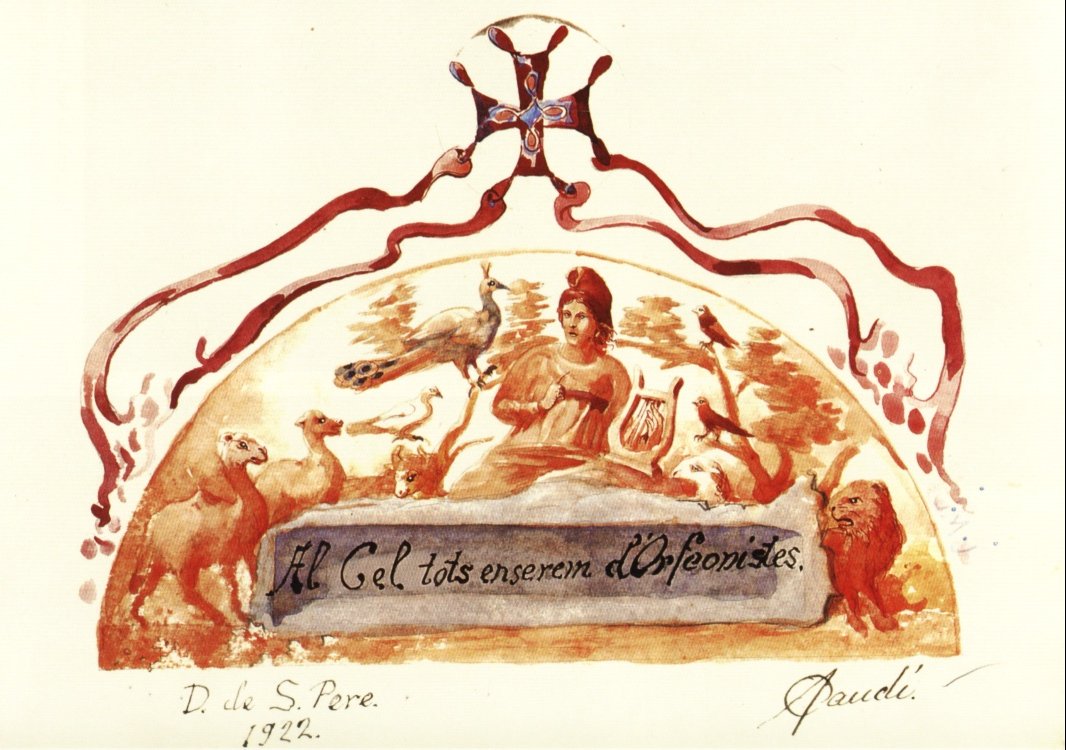 Al Cel tots enserem d'Orfeonistes.
D. de S. Pere.
1922.
Gaudí.